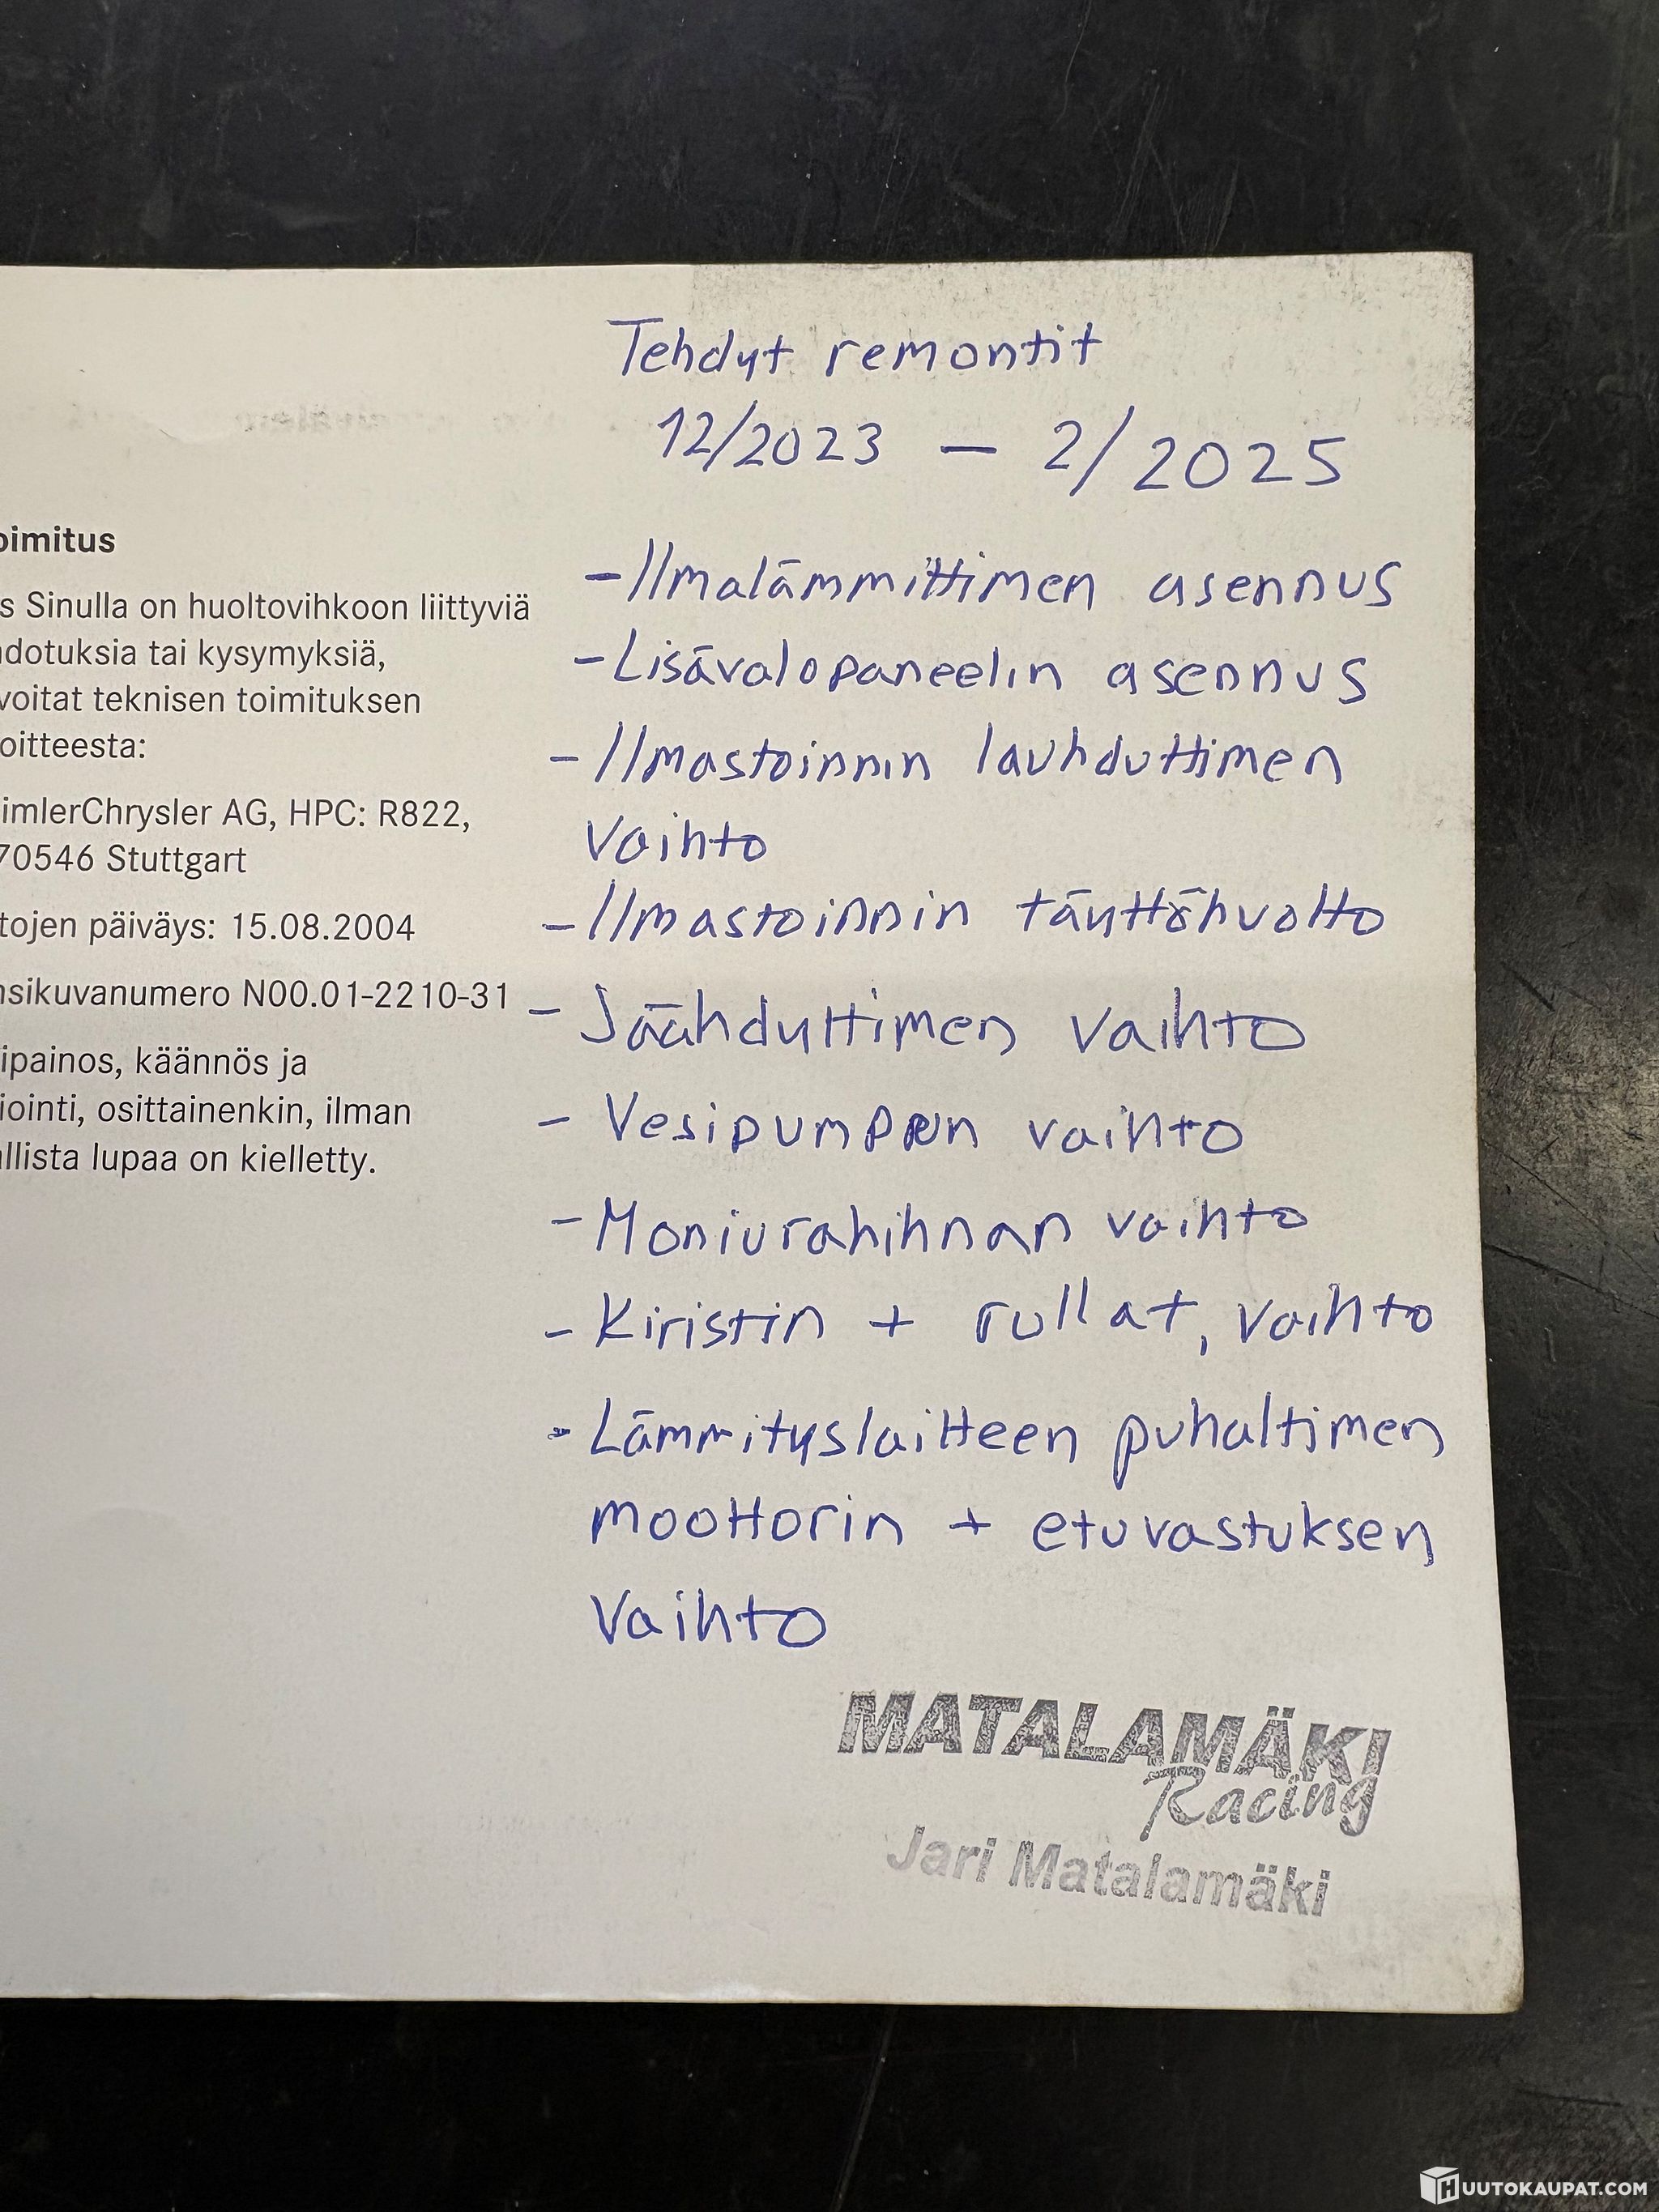 oimitus
s Sinulla on huoltovihkoon liittyviä
dotuksia tai kysymyksiä,
voitat teknisen toimituksen
oitteesta:
imlerChrysler AG, HPC: R822,
70546 Stuttgart
tojen päiväys: 15.08.2004
nsikuvanumero N00.01-2210-31
ipainos, käännös ja
iointi, osittainenkin, ilman
allista lupaa on kielletty.
Tehdyt remontit
12/2023 – 2/2025
- Ilmalämmittimen asennus
- Lisävalopaneelin asennus
- Ilmastoinnin lauhduttimen
vaihto
- Ilmastoinnin täyttöhuolto
- Jäähdyttimen vaihto
- Vesipumpun vaihto
- Moniurahihnan vaihto
- Kiristin + rullat, vaihto
- Lämmityslaitteen puhaltimen
moottorin + etuvastuksen
vaihto
MATALAMÄKI
Racing
Jari Matalamäki
HUUTOKAUPAT.COM